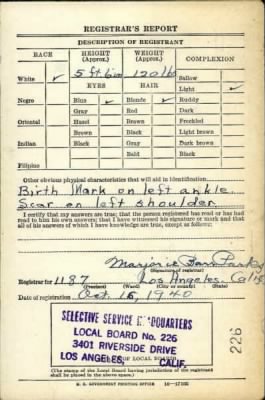 REGISTRAR'S REPORT
DESCRIPTION OF REGISTRANT
RACE HEIGHT (Approx.) WEIGHT (Approx.) COMPLEXION
White ✓ 5 ft. 6 in 120 lbs Sallow
EYES HAIR Light ✓
Negro Blue ✓ Blonde ✓ Ruddy
Gray Red Dark
Oriental Hazel Brown Freckled
Brown Black Light brown
Indian Black Gray Dark brown
Bald Black
Filipino
Other obvious physical characteristics that will aid in identification
Birth Mark on left ankle.
Scar on left shoulder
I certify that my answers are true; that the person registered has read or has had
read to him his own answers; that I have witnessed his signature or mark and that
all of his answers of which I have knowledge are true, except as follows:
Marjorie
(Signature of registrar)
Registrar for 1187 Los Angeles, Calif
(Precinct) (Ward) (City or county) (State)
Date of registration Oct 16, 1940
SELECTIVE SERVICE HEADQUARTERS
LOCAL BOARD No. 226
3401 RIVERSIDE DRIVE
LOS ANGELES, CALIF.
226
(The stamp of the Local Board having jurisdiction of the registrant
shall be placed in the above space.)
U. S. GOVERNMENT PRINTING OFFICE 16—17105